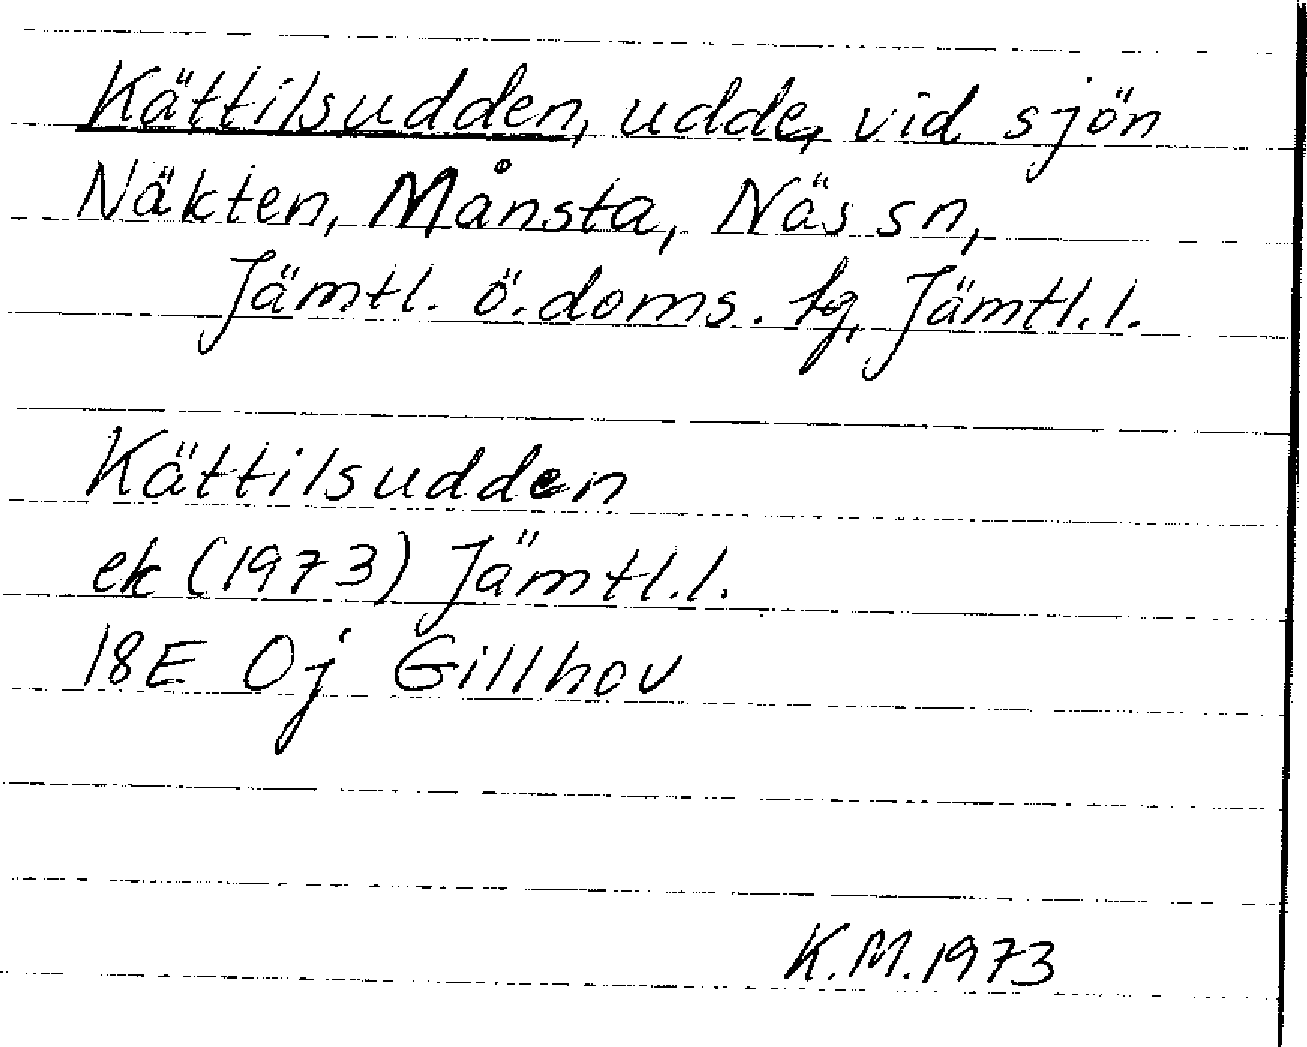 Kättilsudden, udde, vid sjön
Näkten, Månsta, Näs sn,
Jämtl. ö. doms. tg, Jämtl. l.
Kättilsudden
ek (1973) Jämtl. l.
18E 0j Gillhov
K.M. 1973